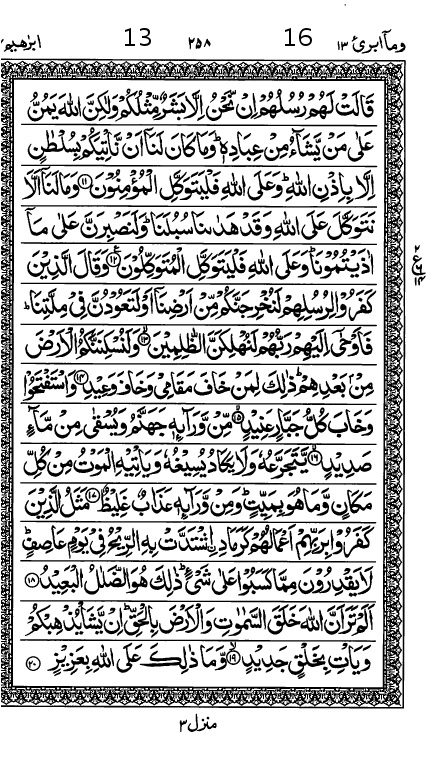 وماۤ ابرئ ١٣ 16 ٢٥٨ 13 ابرٰهیم
قَالَتْ لَهُمْ رُسُلُهُمْ اِنْ نَّحْنُ اِلَّا بَشَرٌ مِّثْلُكُمْ وَلٰكِنَّ اللّٰهَ يَمُنُّ
عَلٰى مَنْ يَّشَآءُ مِنْ عِبَادِهٖ ؕ وَمَا كَانَ لَنَاۤ اَنْ نَّاْتِيَكُمْ بِسُلْطٰنٍ
اِلَّا بِاِذْنِ اللّٰهِ ؕ وَعَلَى اللّٰهِ فَلْيَتَوَكَّلِ الْمُؤْمِنُوْنَ ﴿١١﴾ وَمَا لَنَاۤ اَلَّا
نَتَوَكَّلَ عَلَى اللّٰهِ وَقَدْ هَدٰىنَا سُبُلَنَا ؕ وَلَنَصْبِرَنَّ عَلٰى مَاۤ
اٰذَيْتُمُوْنَا ؕ وَعَلَى اللّٰهِ فَلْيَتَوَكَّلِ الْمُتَوَكِّلُوْنَ ﴿١٢﴾ وَقَالَ الَّذِيْنَ
٢ ع ٦ ١٤
كَفَرُوْا لِرُسُلِهِمْ لَنُخْرِجَنَّكُمْ مِّنْ اَرْضِنَاۤ اَوْ لَتَعُوْدُنَّ فِيْ مِلَّتِنَا ؕ
فَاَوْحٰۤى اِلَيْهِمْ رَبُّهُمْ لَنُهْلِكَنَّ الظّٰلِمِيْنَ ﴿١٣﴾ وَلَنُسْكِنَنَّكُمُ الْاَرْضَ
مِنْۢ بَعْدِهِمْ ؕ ذٰلِكَ لِمَنْ خَافَ مَقَامِيْ وَخَافَ وَعِيْدِ ﴿١٤﴾ وَاسْتَفْتَحُوْا
وَخَابَ كُلُّ جَبَّارٍ عَنِيْدٍ ﴿١٥﴾ مِّنْ وَّرَآئِهٖ جَهَنَّمُ وَيُسْقٰى مِنْ مَّآءٍ
صَدِيْدٍ ﴿١٦﴾ يَّتَجَرَّعُهٗ وَلَا يَكَادُ يُسِيْغُهٗ وَيَاْتِيْهِ الْمَوْتُ مِنْ كُلِّ
مَكَانٍ وَّمَا هُوَ بِمَيِّتٍ ؕ وَمِنْ وَّرَآئِهٖ عَذَابٌ غَلِيْظٌ ﴿١٧﴾ مَثَلُ الَّذِيْنَ
كَفَرُوْا بِرَبِّهِمْ اَعْمَالُهُمْ كَرَمَادِ ۨاشْتَدَّتْ بِهِ الرِّيْحُ فِيْ يَوْمٍ عَاصِفٍ ؕ
لَا يَقْدِرُوْنَ مِمَّا كَسَبُوْا عَلٰى شَيْءٍ ؕ ذٰلِكَ هُوَ الضَّلٰلُ الْبَعِيْدُ ﴿١٨﴾
اَلَمْ تَرَ اَنَّ اللّٰهَ خَلَقَ السَّمٰوٰتِ وَالْاَرْضَ بِالْحَقِّ ؕ اِنْ يَّشَاْ يُذْهِبْكُمْ
وَيَاْتِ بِخَلْقٍ جَدِيْدٍ ﴿١٩﴾ وَّمَا ذٰلِكَ عَلَى اللّٰهِ بِعَزِيْزٍ ﴿٢٠﴾
منزل ٣